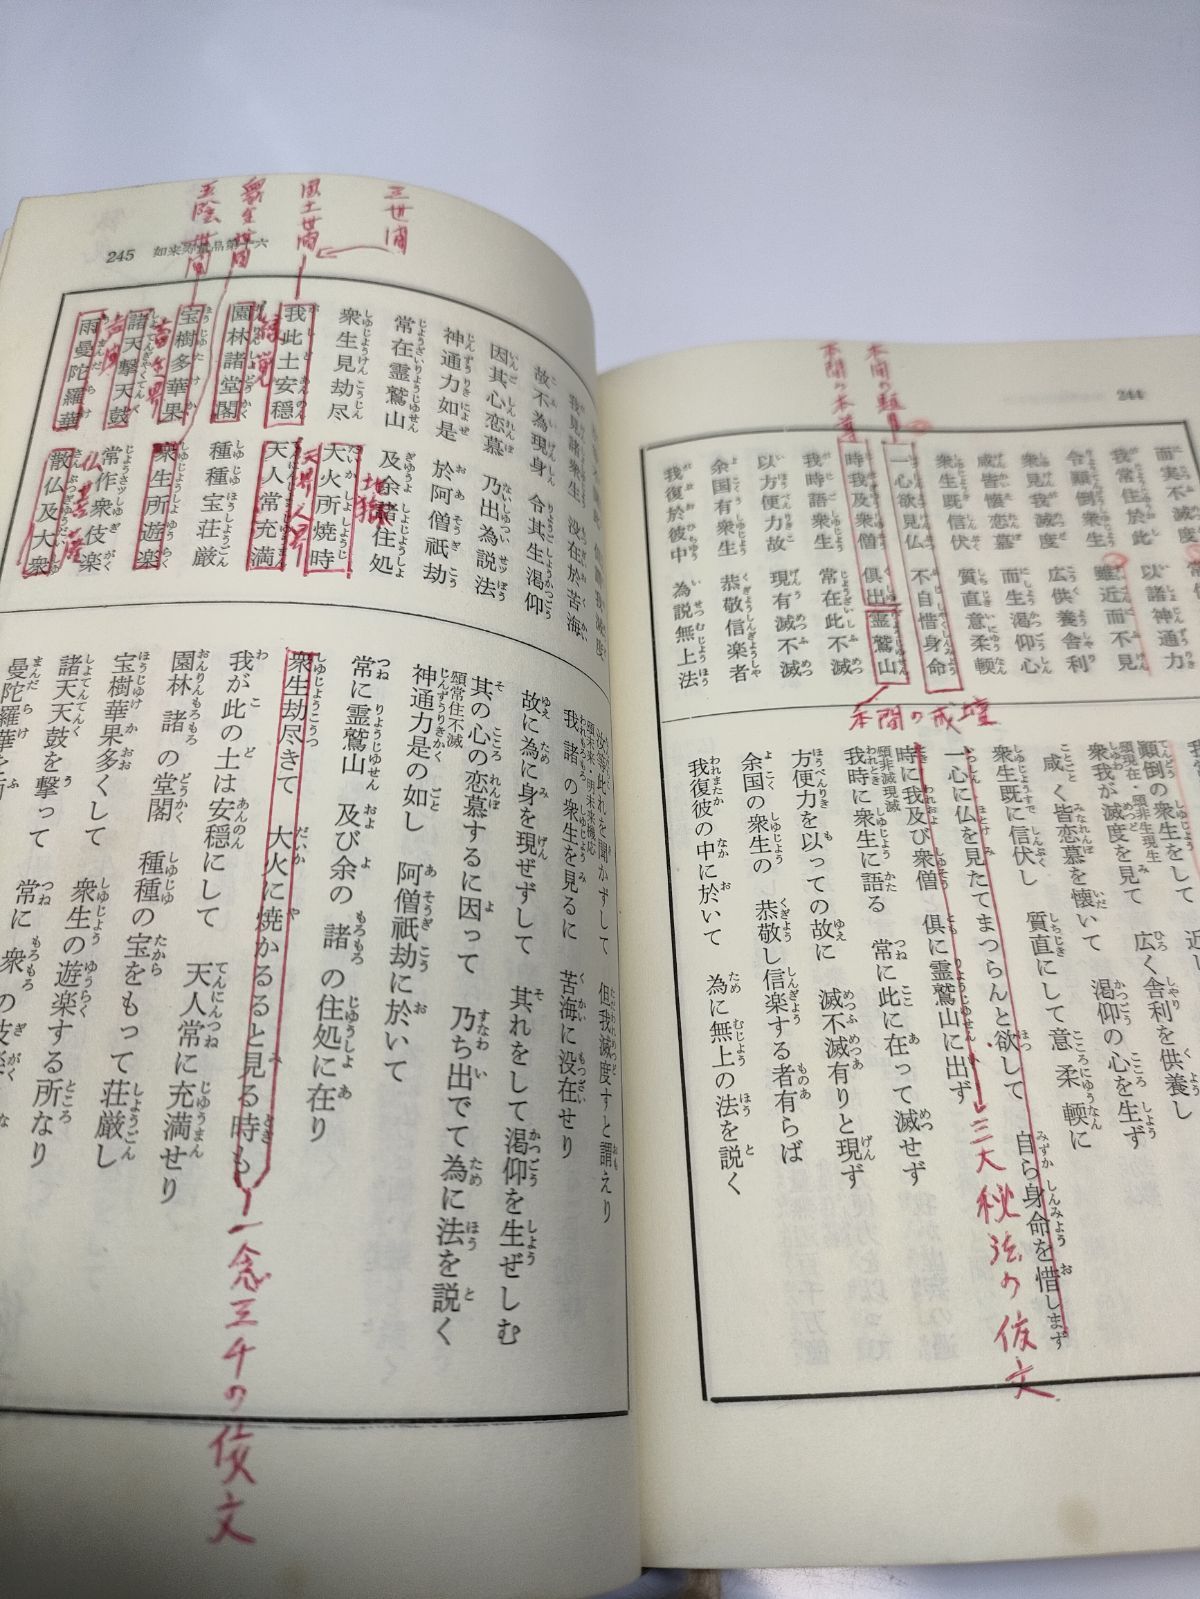 244
而実不滅度
我常住於此 以諸神通力
令顛倒衆生 雖近而不見
衆見我滅度 広供養舎利
咸皆懐恋慕 而生渇仰心
衆生既信伏 質直意柔輭
一心欲見仏 不自惜身命
時我及衆僧 倶出霊鷲山
我時語衆生 常在此不滅
以方便力故 現有滅不滅
余国有衆生 恭敬信楽者
我復於彼中 為説無上法
本門の題目
本門の本尊
本門の戒壇
顛倒の衆生をして
顕現在・顕非生現生
衆我が滅度を見て 広く舎利を供養し
咸く皆恋慕を懐いて 渇仰の心を生ず
衆生既に信伏し 質直にして意柔輭に
一心に仏を見たてまつらんと欲して 自ら身命を惜しまず
時に我及び衆僧 倶に霊鷲山に出ず
顕非滅現滅
我時に衆生に語る 常に此に在って滅せず
方便力を以っての故に 滅不滅有りと現ず
余国の衆生の 恭敬し信楽する者有らば
我復彼の中に於いて 為に無上の法を説く
三大秘法の依文
245 如来寿量品第十六
三世間
国土世間
衆生世間
五陰世間
我見諸衆生 没在於苦海
故不為現身 令其生渇仰
因其心恋慕 乃出為説法
神通力如是 於阿僧祇劫
常在霊鷲山 及余諸住処
衆生見劫尽 大火所焼時
我此土安穏 天人常充満
園林諸堂閣 種種宝荘厳
宝樹多華果 衆生所遊楽
諸天撃天鼓 常作衆伎楽
雨曼陀羅華 散仏及大衆
地獄
天界人界
縁覚
畜生界
声聞
仏
菩薩
汝等此れを聞かずして 但我滅度すと謂えり
顕未来・明未来機応
我諸の衆生を見るに 苦海に没在せり
故に為に身を現ぜずして 其れをして渇仰を生ぜしむ
其の心の恋慕するに因って 乃ち出でて為に法を説く
顕常住不滅
神通力是の如し 阿僧祇劫に於いて
常に霊鷲山 及び余の諸の住処に在り
衆生劫尽きて 大火に焼かるると見る時も
我が此の土は安穏にして 天人常に充満せり
園林諸の堂閣 種種の宝をもって荘厳し
宝樹華果多くして 衆生の遊楽する所なり
諸天天鼓を撃って 常に衆の伎楽
曼陀羅華を
一念三千の依文